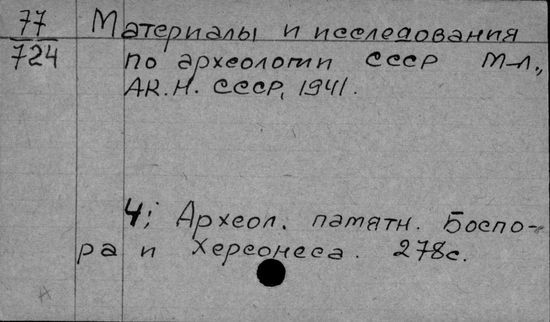 77 Материалы и исследования
724 по археологии СССР М-Л.,
АК.Н. СССР, 1941.
4; Археол. памятн. Боспо-
ра и Херсонеса. 278с.